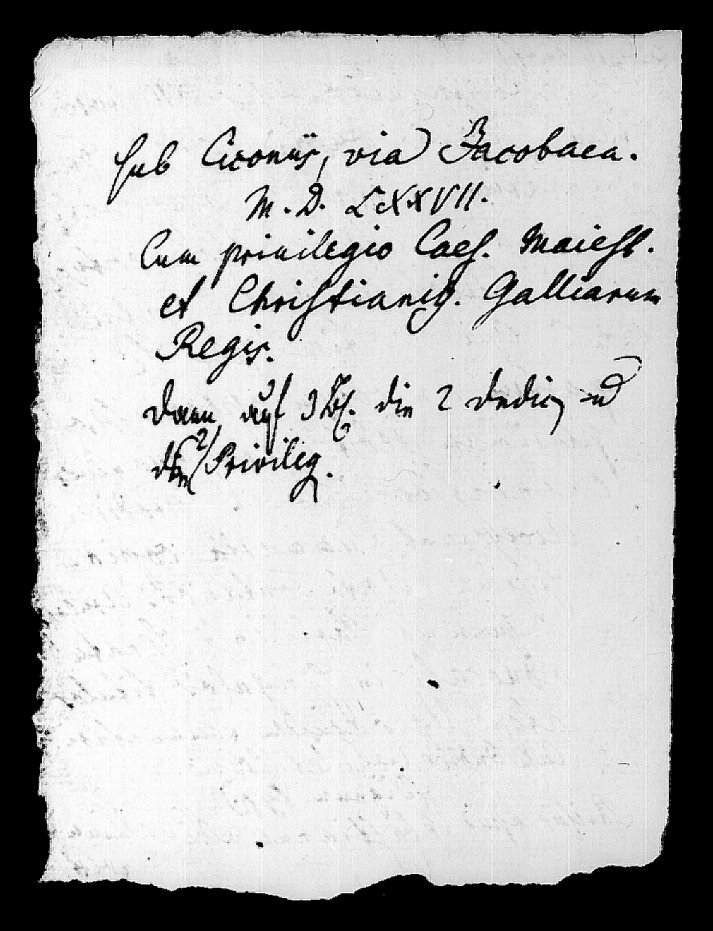 sub Ciconiis, via Jacobaea.
M. D. LXXVII.
Cum priuilegio Caes. Maiest.
et Christianiss. Galliarum
Regis.
Dann auf 3 Bl. die 2 Dedic, und
die 2 Privileg.